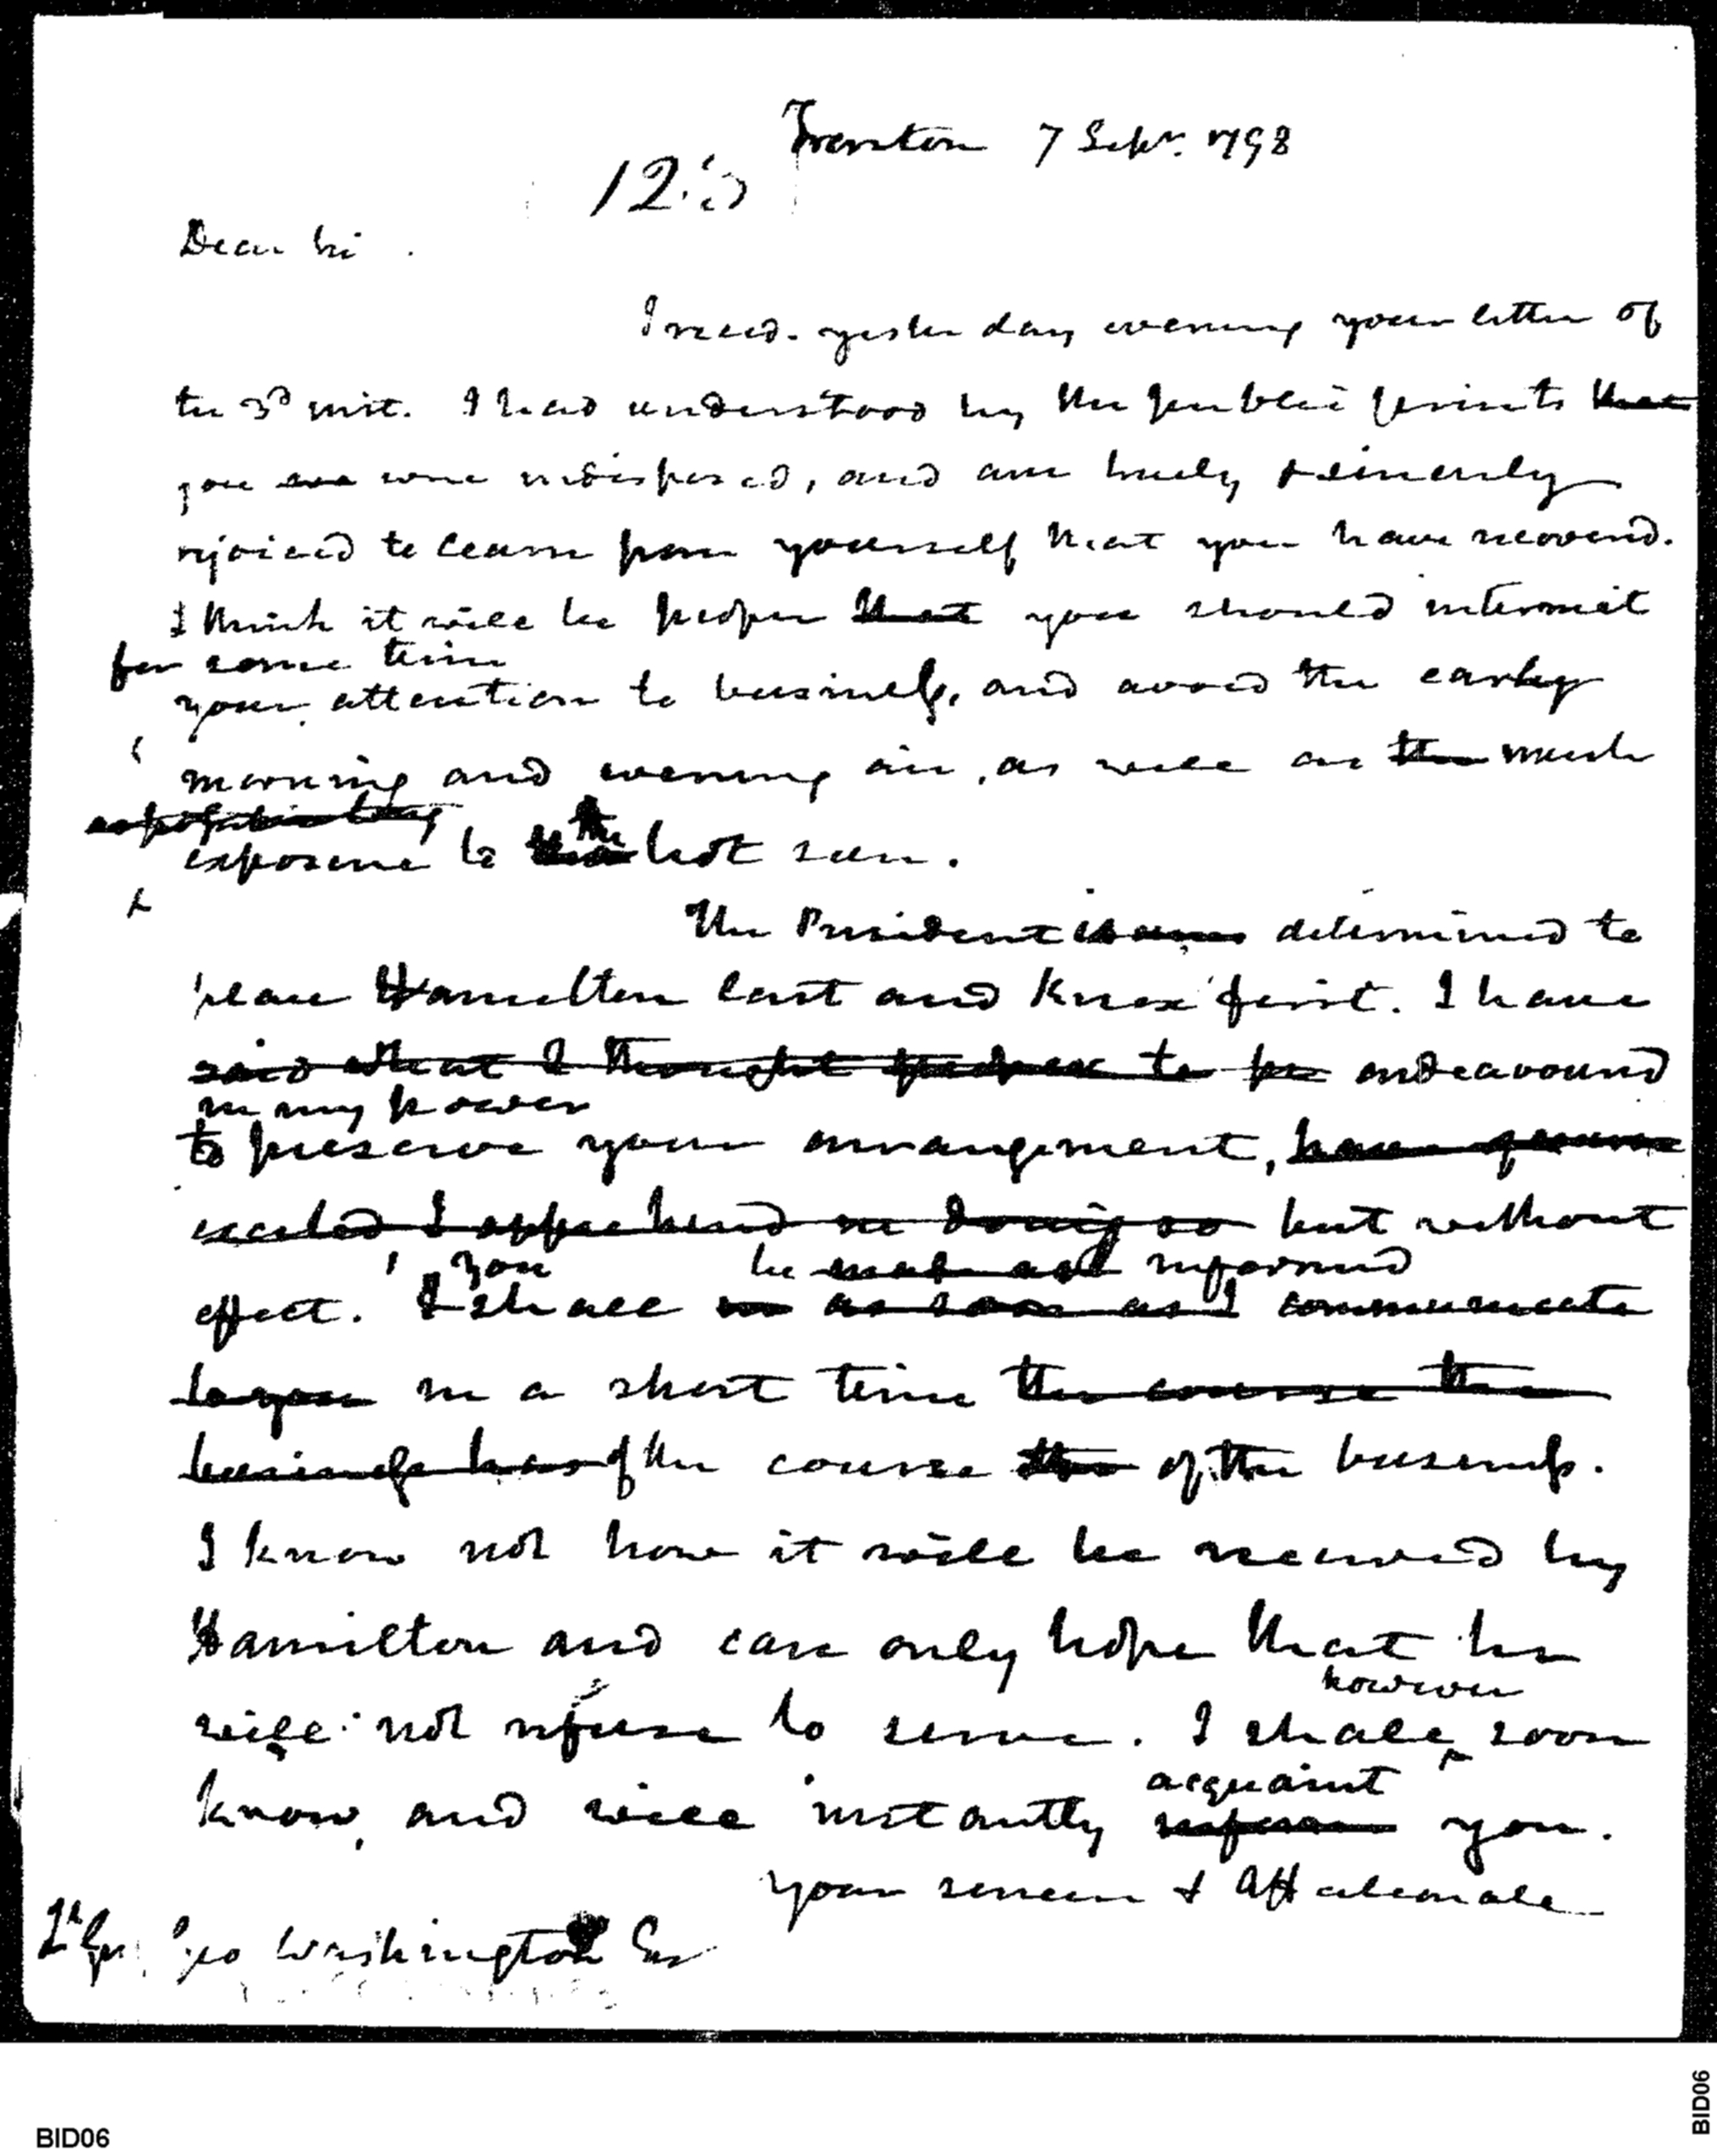 Trenton 7 Sepr. 1798
Dear Sir
I recd. yesterday evening your letter of
the 3d inst. I had understood by the public prints that
you were indisposed, and am truly & sincerely
rejoiced to learn from yourself that you have recovered.
I think it will be proper that you should intermit
for some time
your attention to business, and avoid the early
morning and evening air, as well as the much
exposure to the hot sun.
The President is determined to
place Hamilton last and Knox first. I have
said what I thought proper to be endeavoured
in my power
to preserve your arrangement, have
excited I apprehend in doing so but without
you be informed
effect. I shall as soon as I communicate
to you in a short time the course the
business has of the course the of the business.
I know not how it will be received by
Hamilton and can only hope that he
however
will not refuse to serve. I shall soon
acquaint
know, and will instantly inform you.
your sincere & Affectionate
Lt Gen Geo Washington
BID06
BID06